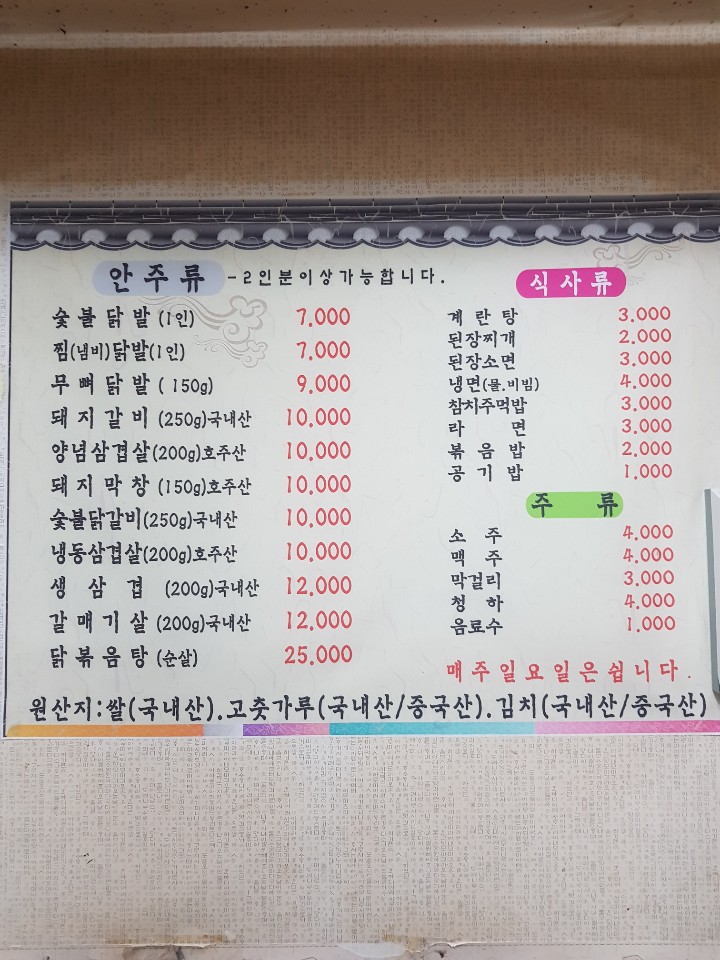 안주류 -2인분이상가능합니다.
숯불닭발 (1인) 7,000
찜(냄비)닭발(1인) 7,000
무뼈닭발 ( 150g) 9,000
돼지갈비 (250g)국내산 10,000
양념삼겹살(200g)호주산 10,000
돼지막창 (150g)호주산 10,000
숯불닭갈비(250g)국내산 10,000
냉동삼겹살(200g)호주산 10,000
생삼겹 (200g)국내산 12,000
갈매기살 (200g)국내산 12,000
닭볶음탕 (순살) 25,000
식사류
계란탕 3,000
된장찌개 2,000
된장소면 3,000
냉면(물.비빔) 4,000
참치주먹밥 3,000
라면 3,000
볶음밥 2,000
공기밥 1,000
주류
소주 4,000
맥주 4,000
막걸리 3,000
청하 4,000
음료수 1,000
매주일요일은쉽니다.
원산지:쌀(국내산).고춧가루(국내산/중국산).김치(국내산/중국산)